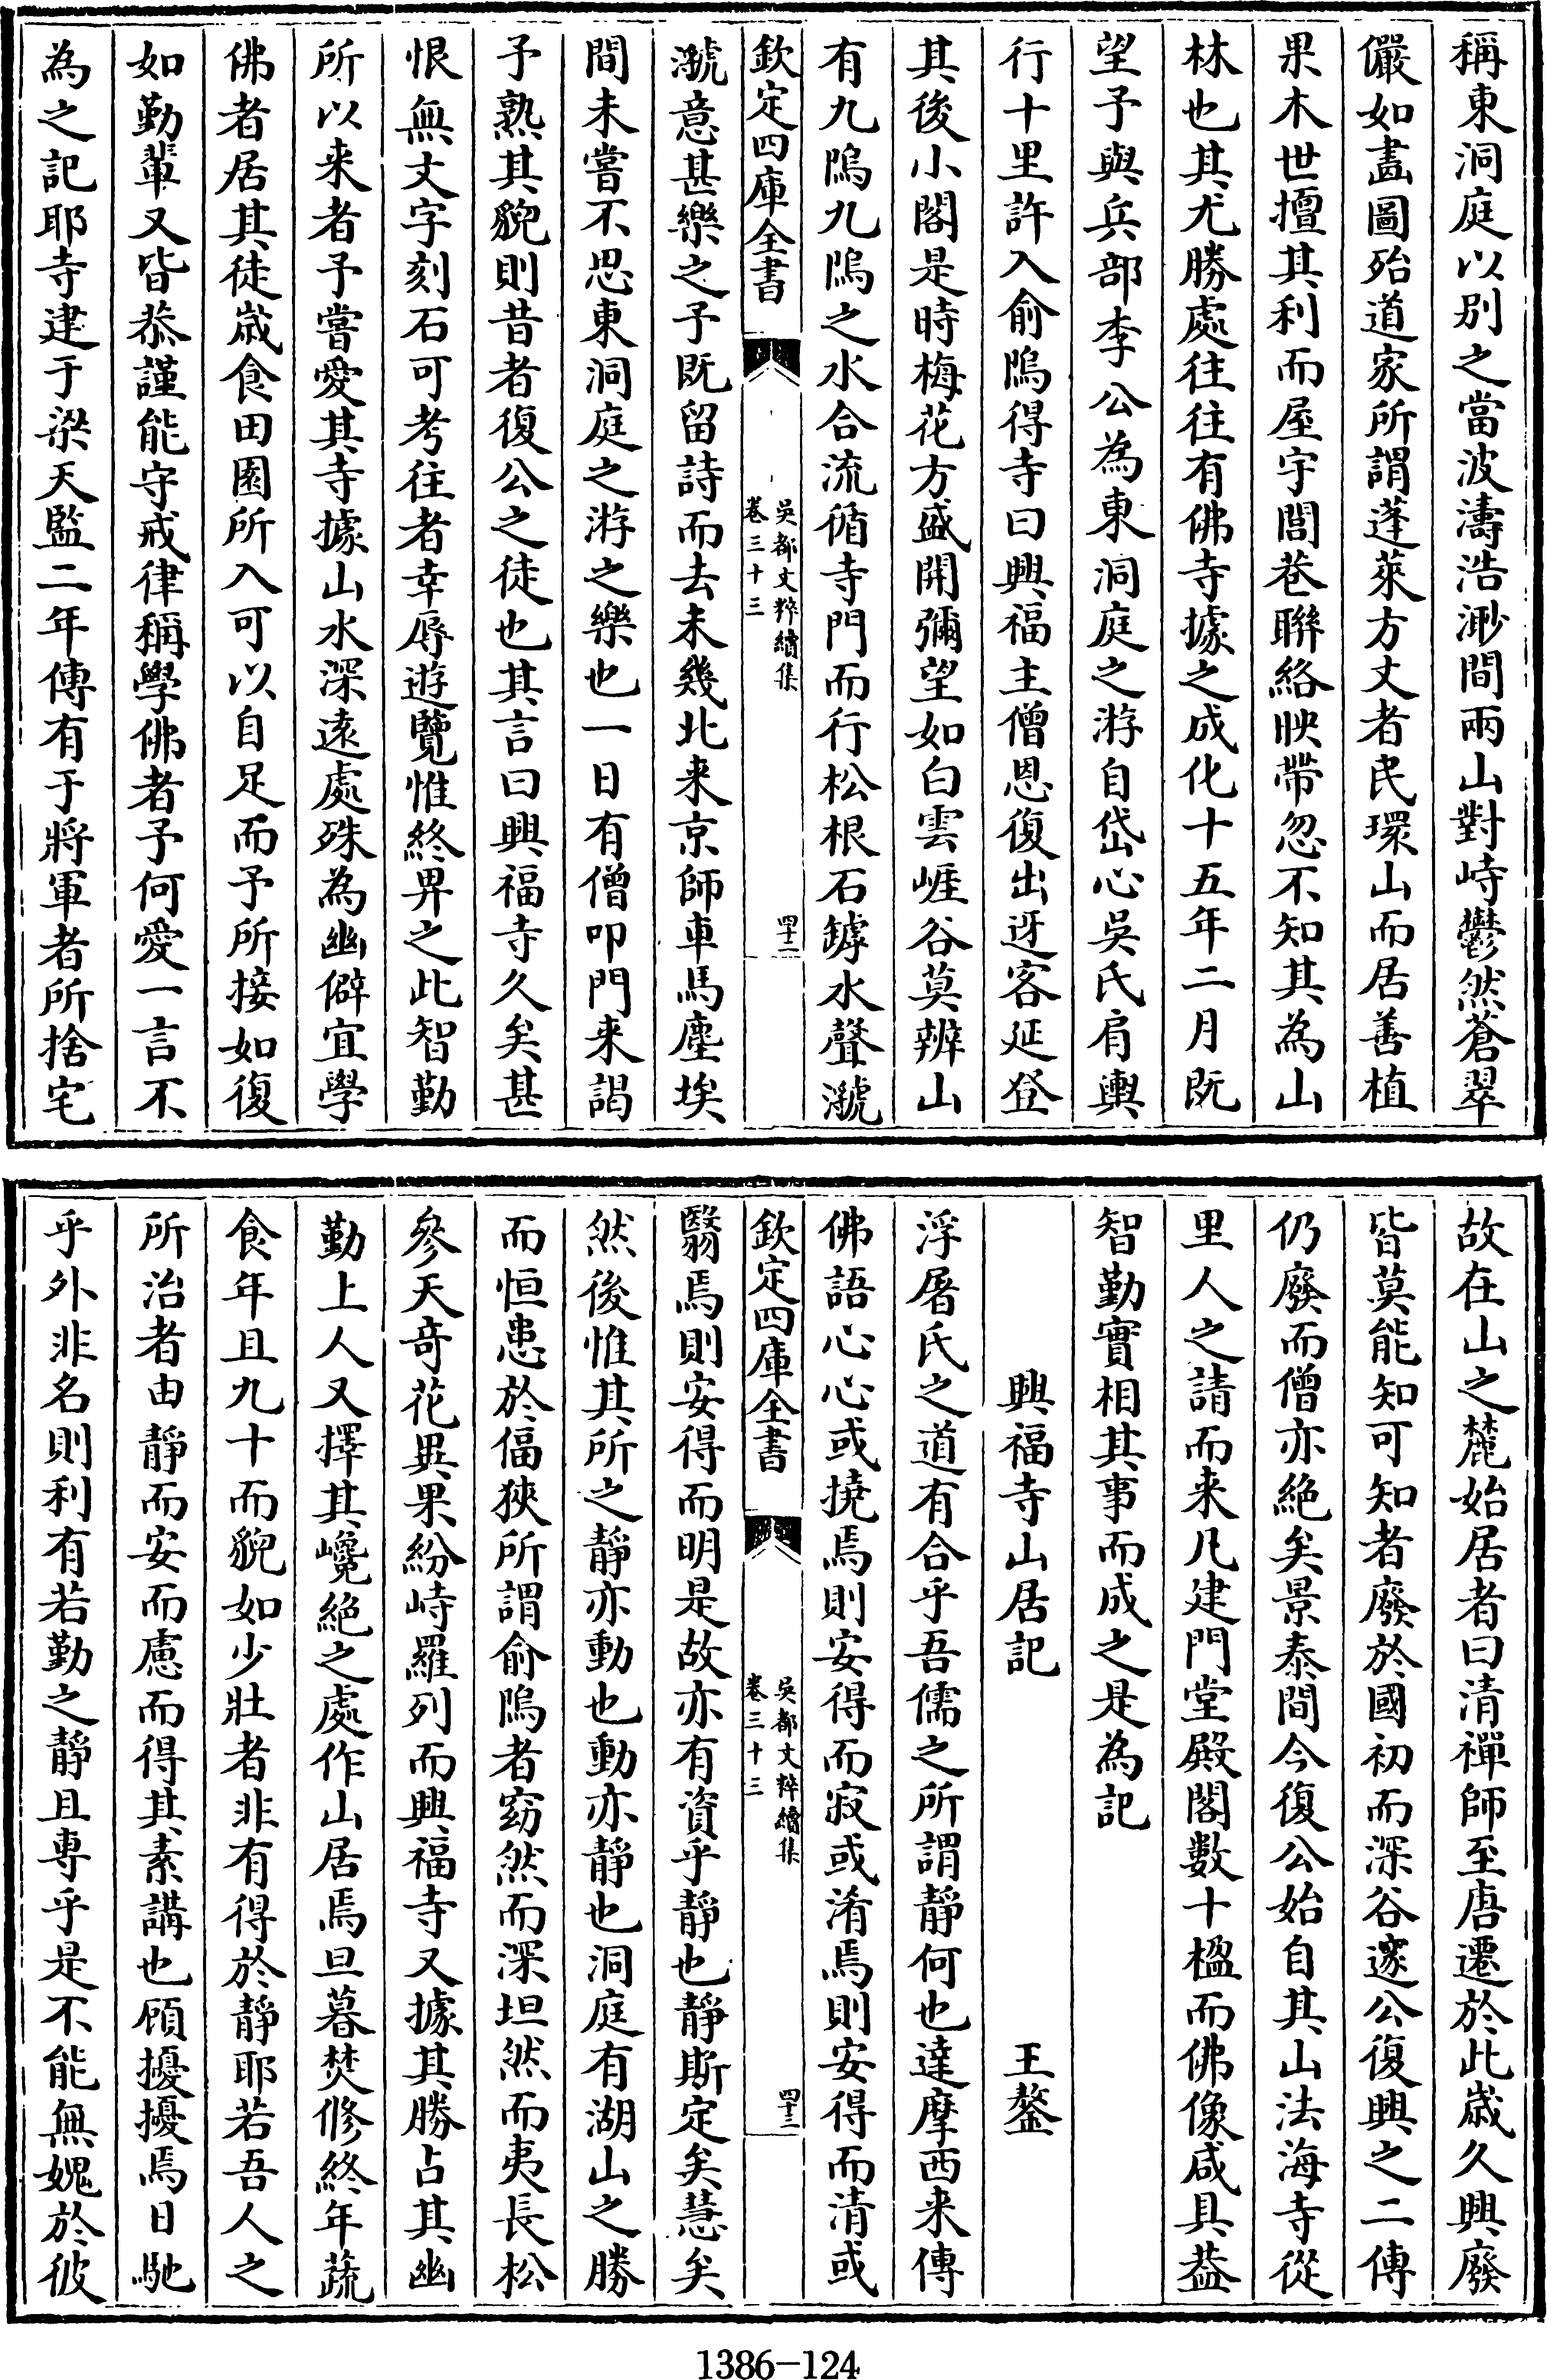 稱東洞庭以别之當波濤浩渺間兩山對峙鬱然蒼翠
儼如畵圖殆道家所謂蓬萊方丈者民環山而居善植
果木世擅其利而屋宇閭巷聯絡映帶忽不知其為山
林也其尤勝處往往有佛寺據之成化十五年二月既
望予與兵部李公為東洞庭之游自岱心吳氏肩輿
行十里許入俞隖得寺曰興福主僧恩復出迓客延登
其後小閣是時梅花方盛開彌望如白雲崕谷莫辨山
有九隖九隖之水合流循寺門而行松根石罅水聲㶁
欽定四庫全書
吳都文粹續集
卷三十三
四十二
㶁意甚樂之予既留詩而去未幾北来京師車馬塵埃
間未嘗不思東洞庭之游之樂也一日有僧叩門来謁
予熟其貌則昔者復公之徒也其言曰興福寺久矣甚
恨無文字刻石可考往者幸辱遊覽惟終畀之此智勤
所以来者予嘗愛其寺據山水深遠處殊為幽僻宜學
佛者居其徒嵗食田園所入可以自足而予所接如復
如勤輩又皆恭謹能守戒律稱學佛者予何愛一言不
為之記耶寺建于梁天監二年傳有于將軍者所捨宅
故在山之麓始居者曰清禪師至唐遷於此嵗久興廢
皆莫能知可知者廢於國初而深谷邃公復興之二傳
仍廢而僧亦絶矣景泰間今復公始自其山法海寺從
里人之請而来凡建門堂殿閣數十楹而佛像咸具葢
智勤實相其事而成之是為記
興福寺山居記
王鏊
浮屠氏之道有合乎吾儒之所謂靜何也達摩西来傳
佛語心心或撓焉則安得而寂或淆焉則安得而清或
欽定四庫全書
吳都文粹續集
卷三十三
四十三
翳焉則安得而明是故亦有資乎靜也靜斯定矣慧矣
然後惟其所之靜亦動也動亦靜也洞庭有湖山之勝
而恒患於偪狹所謂俞隖者窈然而深坦然而夷長松
參天奇花異果紛峙羅列而興福寺又據其勝占其幽
勤上人又擇其巉絶之處作山居焉旦暮焚修終年蔬
食年且九十而貌如少壯者非有得於靜耶若吾人之
所治者由靜而安而慮而得其素講也顧擾擾焉日馳
乎外非名則利有若勤之靜且專乎是不能無媿於彼
1386-124